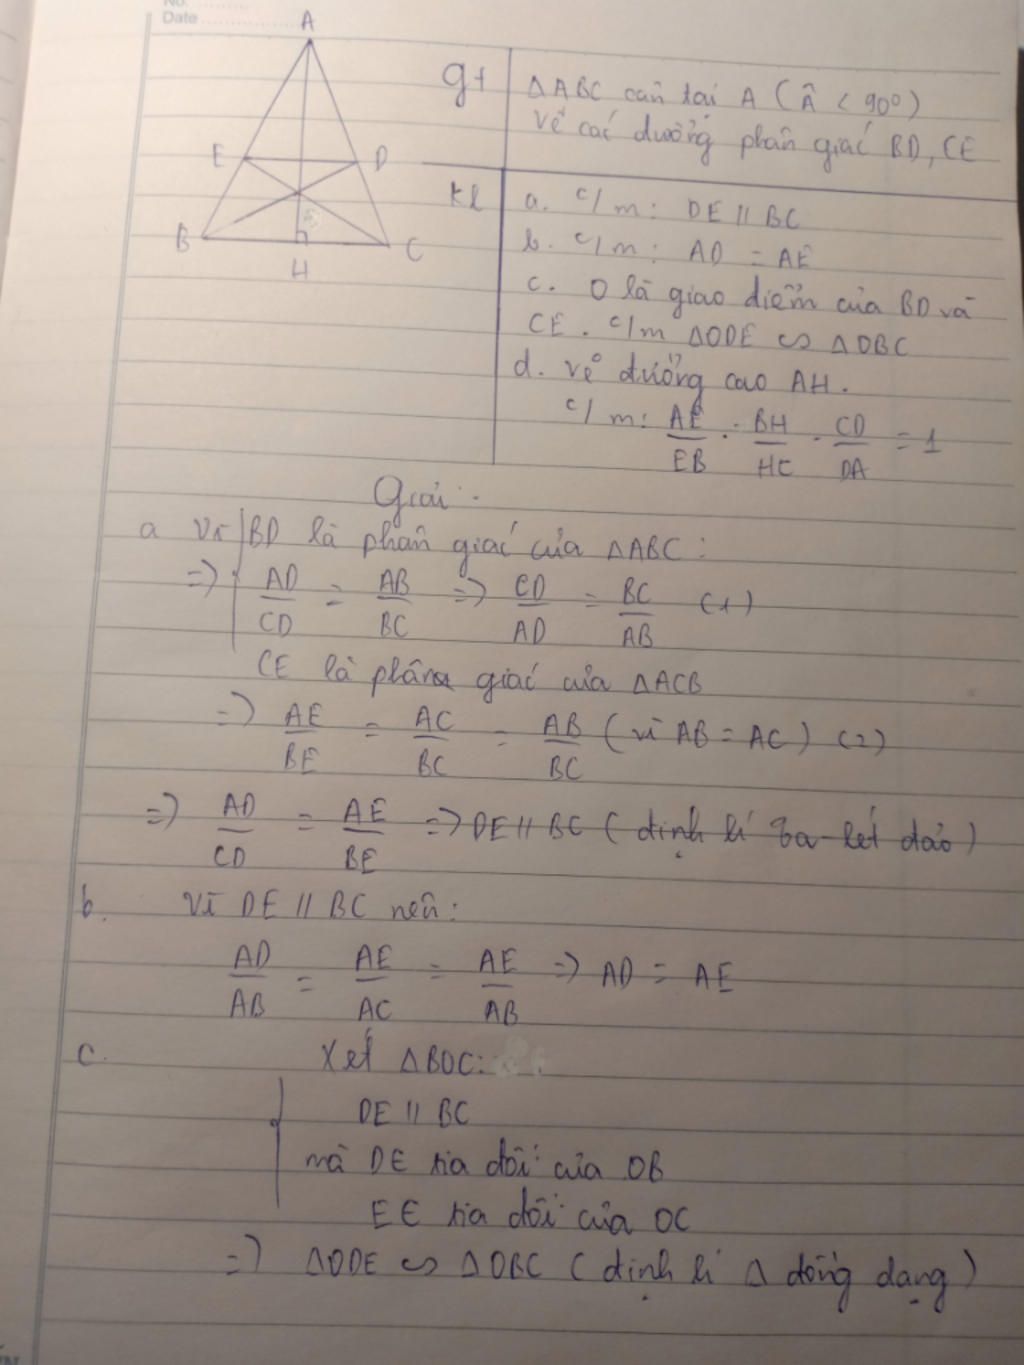 No.
Date
A
E
D
B
C
H
gt
ΔABC cân tại A (Â < 90°)
Vẽ các đường phân giác BD, CE
kl
a. c/m: DE // BC
b. c/m: AD = AE
c. O là giao điểm của BD và
CE. c/m ΔODE ∽ ΔOBC
d. vẽ đường cao AH.
c/m: AE/EB . BH/HC . CD/DA = 1
Giải:
a Vì BD là phân giác của ΔABC:
=> AD/CD = AB/BC => CD/AD = BC/AB (1)
CE là phân giác của ΔACB
=> AE/BE = AC/BC = AB/BC (vì AB = AC) (2)
=> AD/CD = AE/BE => DE // BC (định lí Ta-lét đảo)
b. Vì DE // BC nên:
AD/AB = AE/AC = AE/AB => AD = AE
c. Xét ΔBOC:
DE // BC
mà DE tia đối của OB
EE tia đối của OC
=> ΔODE ∽ ΔOBC (định lí Δ đồng dạng)